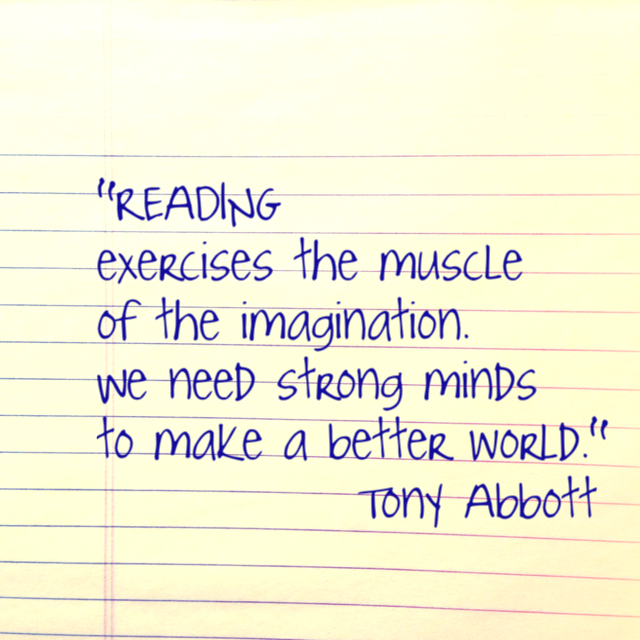 "READING
exercises the muscle
of the imagination.
we need strong minds
to make a better world."
Tony Abbott